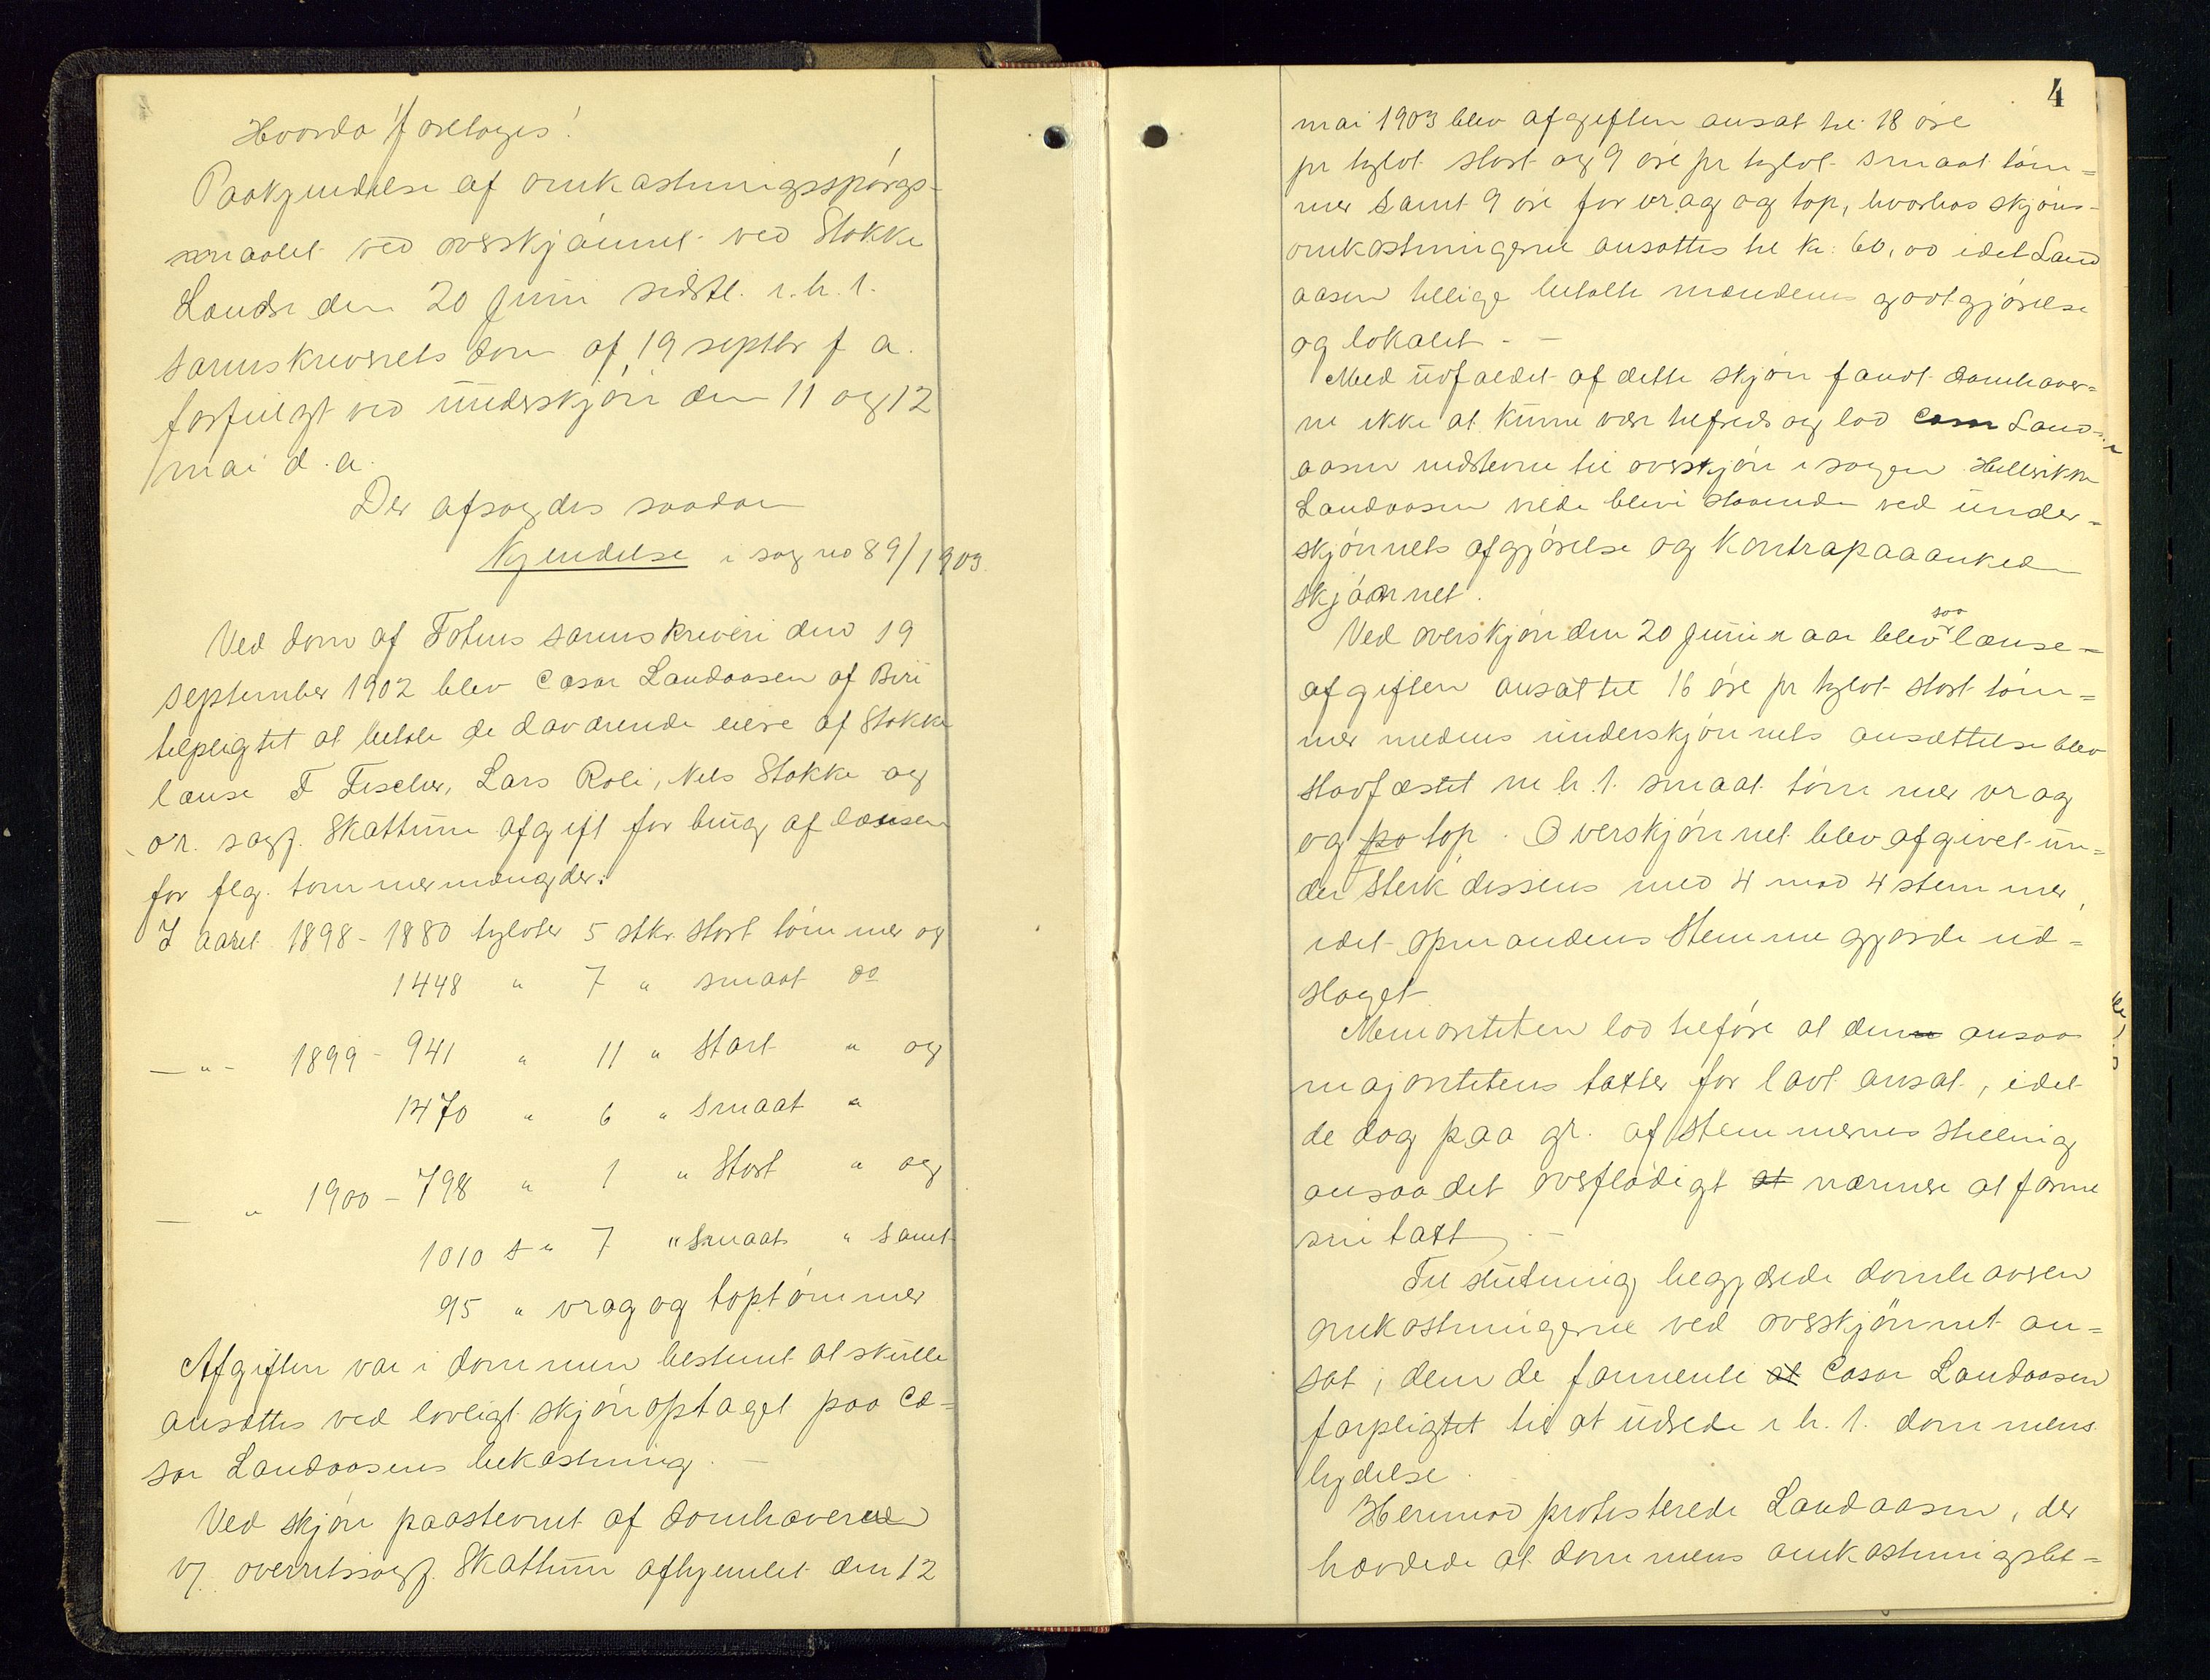 Hvorda foretoges!
Paakjendelse af omkostningsspørgs-
maalet ved overskjønnet ved Stokke
Landse den 20 Juni sidstl. i. h. t.
sorenskriverets dom af 19 septbr f a.
forfulgt ved underskjøn den 11 og 12
mai d. a.
Der afsagdes saadan
Kjendelse i sag no 89/1903.
Ved dom af Totens sorenskriveri den 19
september 1902 blev Cæsar Landaasen af Biri
tilpligtet at betale de daværende eiere af Stokke
lænse F Fischer, Lars Roli, Nils Stokke og
o'r. sagf. Skattum afgift for brug af lænsen
for flg. tømmermængder:
I aaret 1898 - 1880 tylvter 5 stkr. stort tømmer og
1448 " 7 " smaat do
— " - 1899 - 941 " 11 " stort " og
1470 " 6 " smaat "
— " 1900 - 798 " 1 " stort " og
1010 " 7 " smaat " samt
95 " vrag og toptømmer
Afgiften var i dommen bestemt at skulle
ansættes ved lovligt skjøn optaget paa Cæ-
sar Landaasens bekostning. —
Ved skjøn paastevnet af domhaverne
v/ overretssagf. Skattum afhjemlet den 12
4
mai 1903 blev afgiften ansat til 18 øre
pr tylvt stort og 9 øre pr tylvt smaat tøm=
mer samt 9 øre for vrag og top, hvorhos skjøns-
omkostningerne ansattes til kr. 60,00 idet Land
aasen tillige betalte mændenes godtgjørelse
og lokalet. —
Med udfaldet af dette skjøn fandt domhaver=
ne ikke at kunne være tilfreds og lod Cæsar Land-
aasen indstevne til overskjøn i sagen. Hellerikke
Landaasen vilde blive staaende ved under-
skjønnets afgjørelse og kontrapaaanked
skjønnet.
Ved overskjøn den 20 Juni n aar blev saa lænse-
afgiften ansat til 16 øre pr tylvt stort tøm=
mer medens underskjønnets ansættelse blev
stadfæstet m. h. t. smaat tømmer vrag
og po top. Overskjønnet blev afgivet un=
der sterk dissens med 4 mod 4 stemmer,
idet opmandens stemme gjorde ud=
slaget
Minoriteten lod tilføre at denne ansaa
majoritetens takster for lavt ansat, idet
de dog paa gr. af stemmernes stilling
ansaa det overflødigt at nærmere at forme
sin takst. —
Til slutning begjærede domhaveren
omkostningerne ved overskjønnet an=
sat, dem de formente at Cæsar Landaasen
forpligtet til at udrede i h. t. dommens
lydelse.
Herimod protesterede Landaasen, der
hævdede at dommens omkostningsbe=